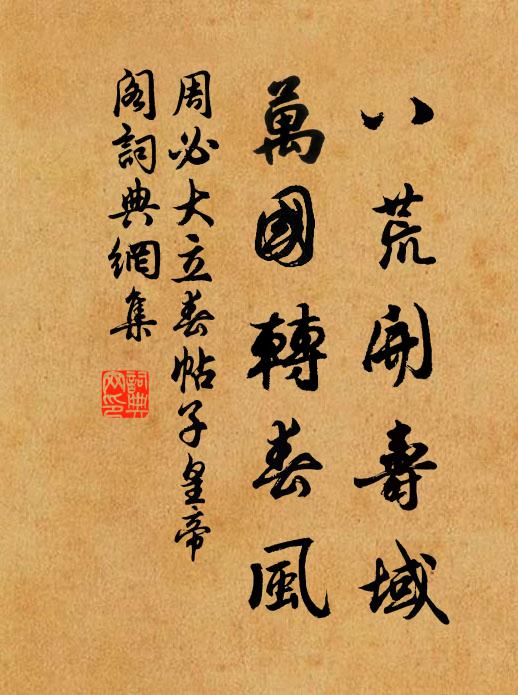 八荒開壽域
萬國轉春風
周必大立春帖子皇帝
閣詞典網集
詞典
网印